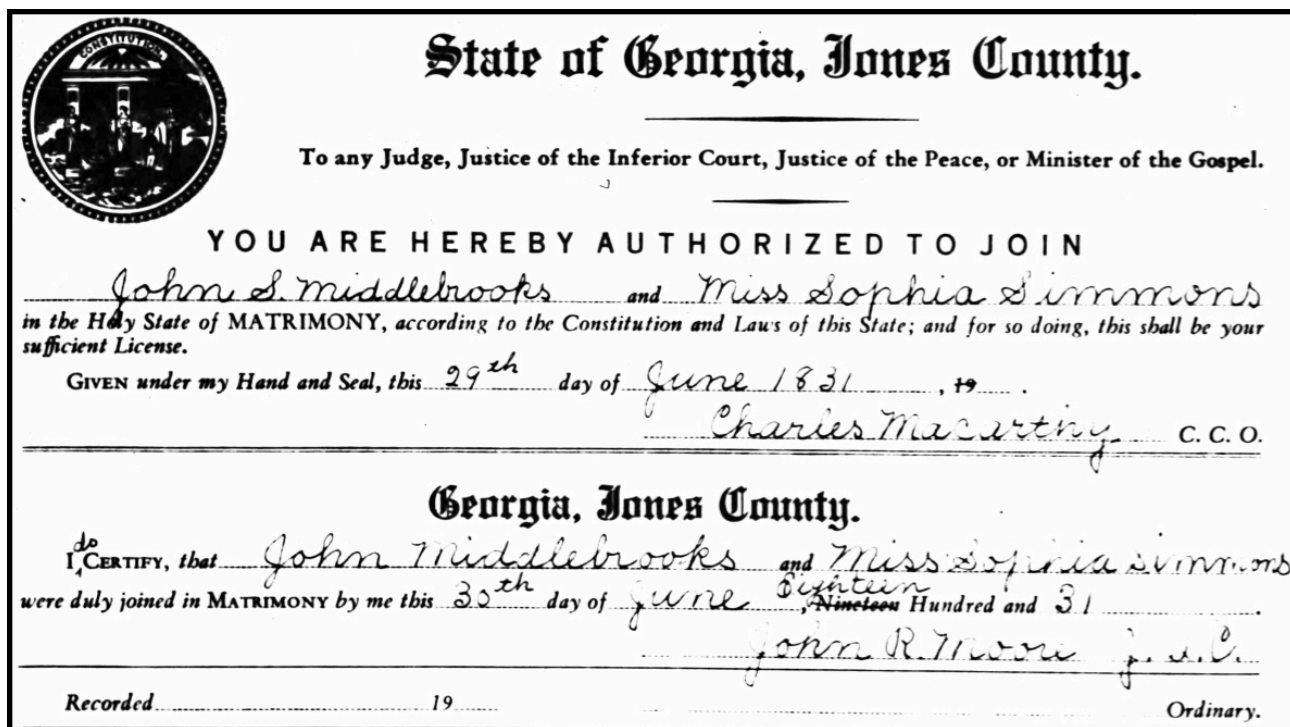 CONSTITUTION
State of Georgia, Jones County.
To any Judge, Justice of the Inferior Court, Justice of the Peace, or Minister of the Gospel.
YOU ARE HEREBY AUTHORIZED TO JOIN
John S. Middlebrooks and Miss Sophia Simmons
in the Holy State of MATRIMONY, according to the Constitution and Laws of this State; and for so doing, this shall be your
sufficient License.
GIVEN under my Hand and Seal, this 29th day of June 1831, 19 .
Charles Macarthy C. C. O.
Georgia, Jones County.
I do CERTIFY, that John Middlebrooks and Miss Sophia Simmons
were duly joined in MATRIMONY by me this 30th day of June, Nineteen Eighteen Hundred and 31 .
John R. Moore J. I. C.
Recorded 19 Ordinary.